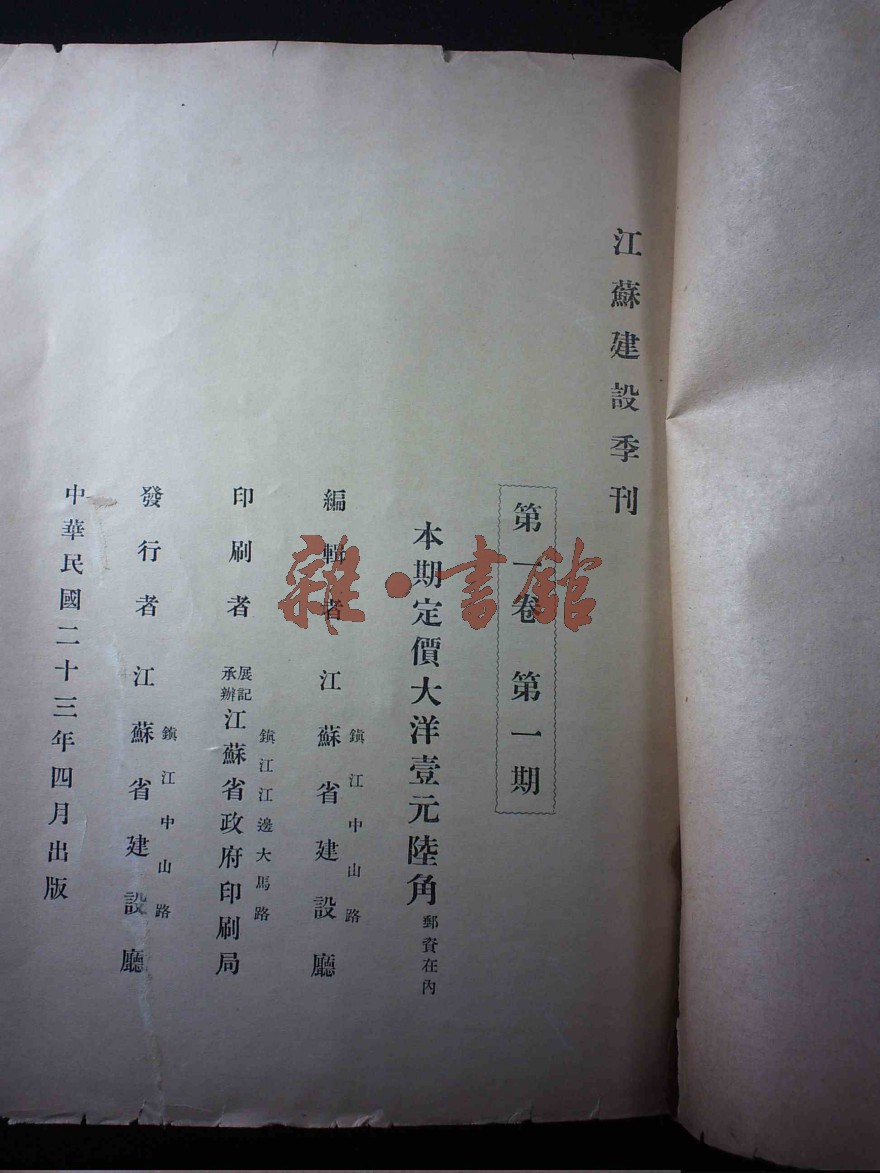 江蘇建設季刊
第一卷 第一期
本期定價大洋壹元陸角 郵資在內
編輯者 江蘇省建設廳 鎮江中山路
印刷者 展記承辦 江蘇省政府印刷局 鎮江江邊大馬路
發行者 江蘇省建設廳 鎮江中山路
中華民國二十三年四月出版
雜·書館